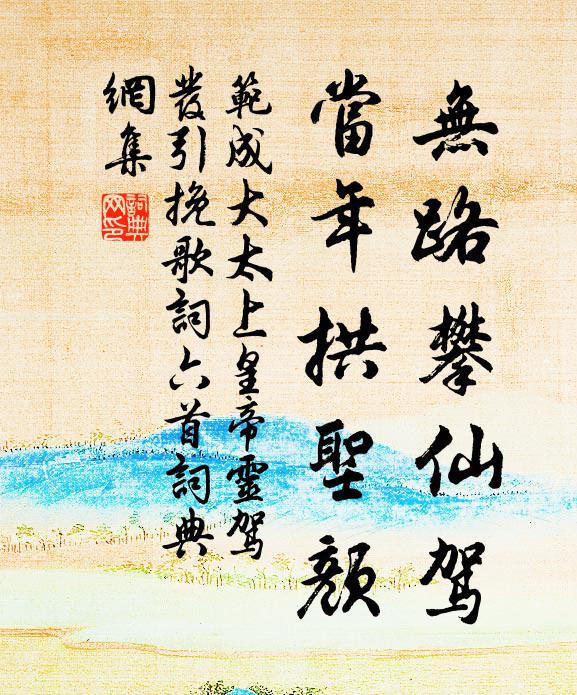 無路攀仙駕
當年拱聖顏
範成大太上皇帝靈駕
發引挽歌詞六首詞典
網集
詞典
网印